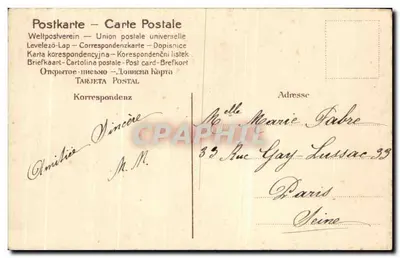 Postkarte – Carte Postale
Weltpostverein – Union postale universelle
Levelező-Lap – Correspondenzkarte – Dopisnice
Karta korespondencyjna – Korespondenční lístek
Briefkaart – Cartolina postale – Post card – Brefkort
Открытое письмо – Дописна карта
TARJETA POSTAL
Korrespondenz
Adresse
Amitié Sincère
M. M.
Melle Marie Fabre
33 Rue Gay-Lussac 33
Paris
Seine